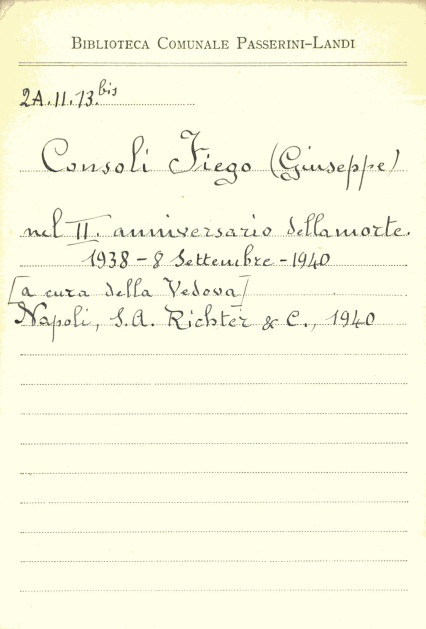 BIBLIOTECA COMUNALE PASSERINI-LANDI
2A.II.13.bis
Consoli Fiego (Giuseppe)
nel II. anniversario della morte.
1938 - 8 Settembre - 1940
[a cura della Vedova]
Napoli, S.A. Richter & C., 1940